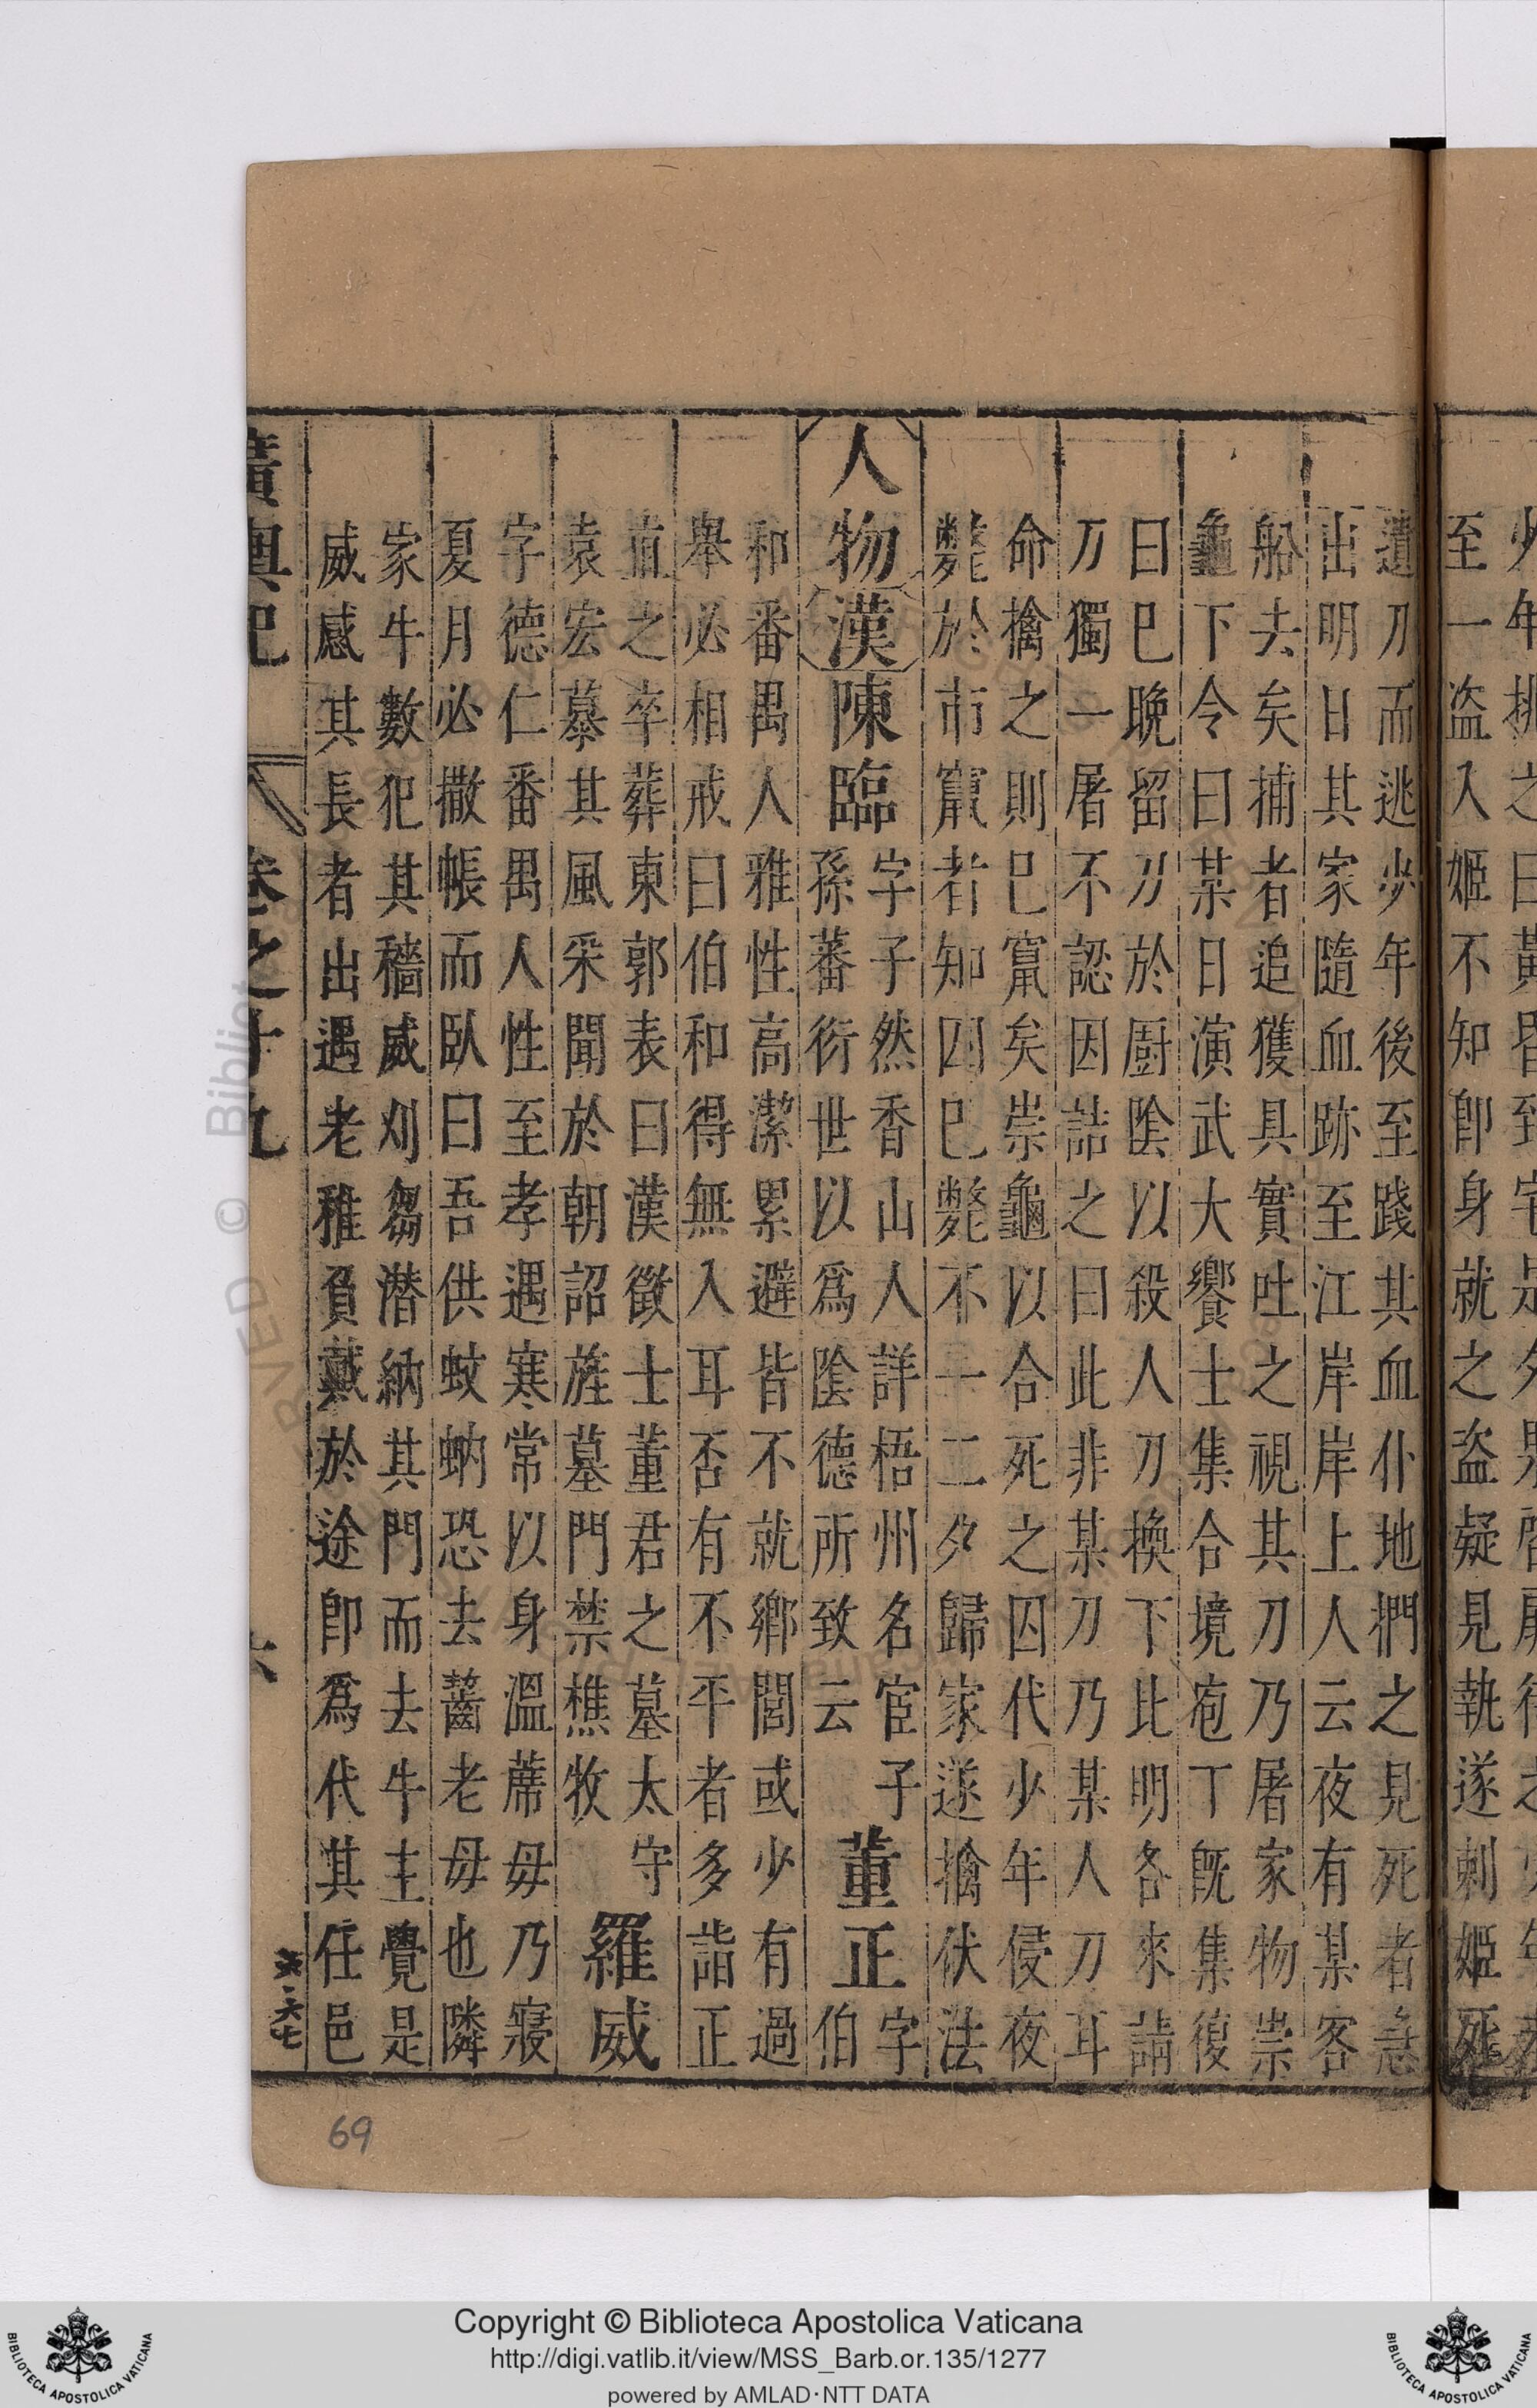 遺刀而逃少年後至踐其血仆地捫之見死者急
出明日其家隨血跡至江岸岸上人云夜有某客
船去矣捕者追獲具實吐之視其刀乃屠家物崇
龜下令曰某日演武大饗士集合境庖丁既集復
曰巳晚留刀於厨陰以殺人刀換下比明各來請
刀獨一屠不認因詰之曰此非某刀乃某人刀耳
命擒之則巳竄矣崇龜以合死之囚代少年侵夜
斃於市竄者知囚巳斃不一二夕歸家遂擒伏法
人物
漢
陳臨
字子然香山人詳梧州名宦子
孫蕃衍世以爲陰德所致云
董正
字
伯
和番禺人雅性高潔累避皆不就鄉閭或少有過
舉必相戒曰伯和得無入耳否有不平者多詣正
直之卒葬東郭表曰漢徵士董君之墓太守
袁宏慕其風采聞於朝詔旌墓門禁樵牧
羅威
字德仁番禺人性至孝遇寒常以身溫蓆毋乃寢
夏月必撒帳而臥曰吾供蚊蚋恐去齧老毋也隣
家牛數犯其穡威刈芻潜納其門而去牛主覺是
威感其長者出遇老稚負戴於途即爲代其任邑
廣輿記
卷之十九
六
六二六七
至一盗入姬不知即身就之盗疑見執遂刺姬死
69
Copyright © Biblioteca Apostolica Vaticana
http://digi.vatlib.it/view/MSS_Barb.or.135/1277
powered by AMLAD·NTT DATA
BIBLIOTECA APOSTOLICA VATICANA
BIBLIOTECA APOSTOLICA VATICANA